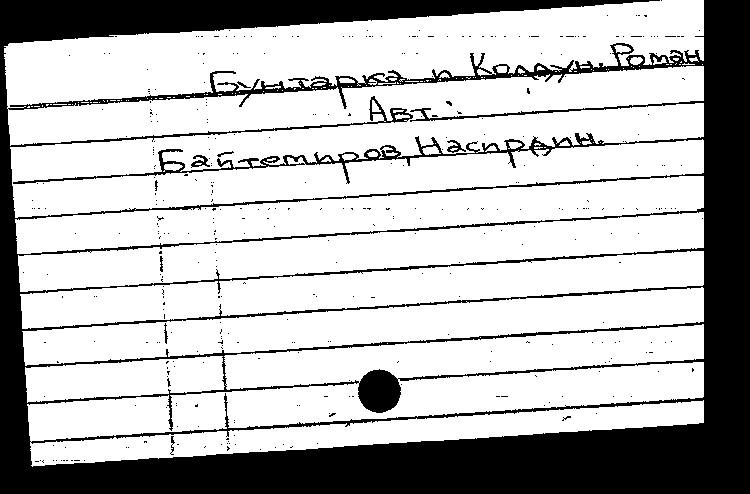 Бунтарка и Колдун. Роман
Авт.:
Байтемиров, Насирдин.